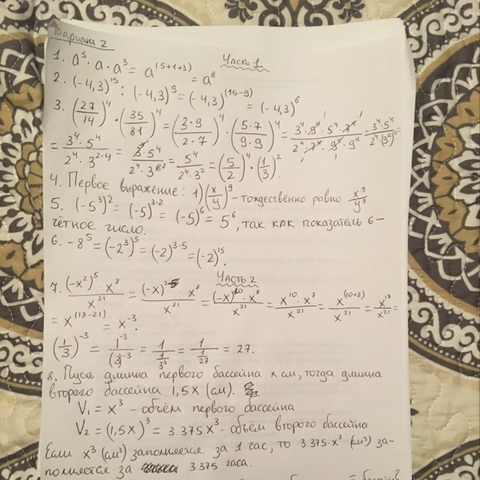 Вариант 2
Часть 1
1. a⁵·a·a³ = a⁽⁵⁺¹⁺³⁾ = a⁸
2. (-4,3)¹⁵ : (-4,3)⁹ = (-4,3)⁽¹⁵⁻⁹⁾ = (-4,3)⁶
3. (27/14)⁴ · (35/81)⁴ = (3·9/2·7)⁴ · (5·7/9·9)⁴ =
4. Первое выражение: 1) (x/y)⁹ - тождественно равно
5. (-5³)² = (-5)³·² = (-5)⁶ = 5⁶, так как показатель 6 -
чётное число.
6. -8⁵ = (-2³)⁵ = (-2)³·⁵ = (-2)¹⁵.
Часть 2
7. (-x²)⁵·x⁸/x²¹ = = x¹⁰·x⁸/x²¹ = x⁽¹⁰⁺⁸⁾/x²¹ = x¹⁸/x²¹ =
= x⁽¹⁸⁻²¹⁾ = x⁻³.
(1/3)⁻³ = = 1/(1/27) = 27.
8. Пусть длина первого бассейна x см, тогда длина
второго бассейна 1,5x (см).
V₁ = x³ - объём первого бассейна
V₂ = (1,5x)³ = 3.375x³ - объём второго бассейна
Если x³ (см³) заполняется за 1 час, то 3.375·x³ (см³) за-
полняется за 3.375 часа.